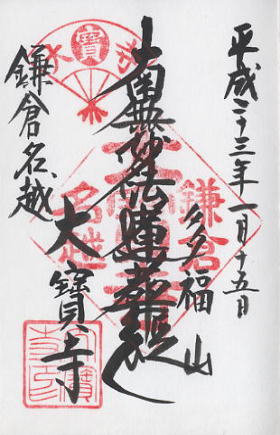 平成二十三年一月十五日
多福山
南無妙法蓮華経
大寳寺
鎌倉名越
寳
鎌倉
名越